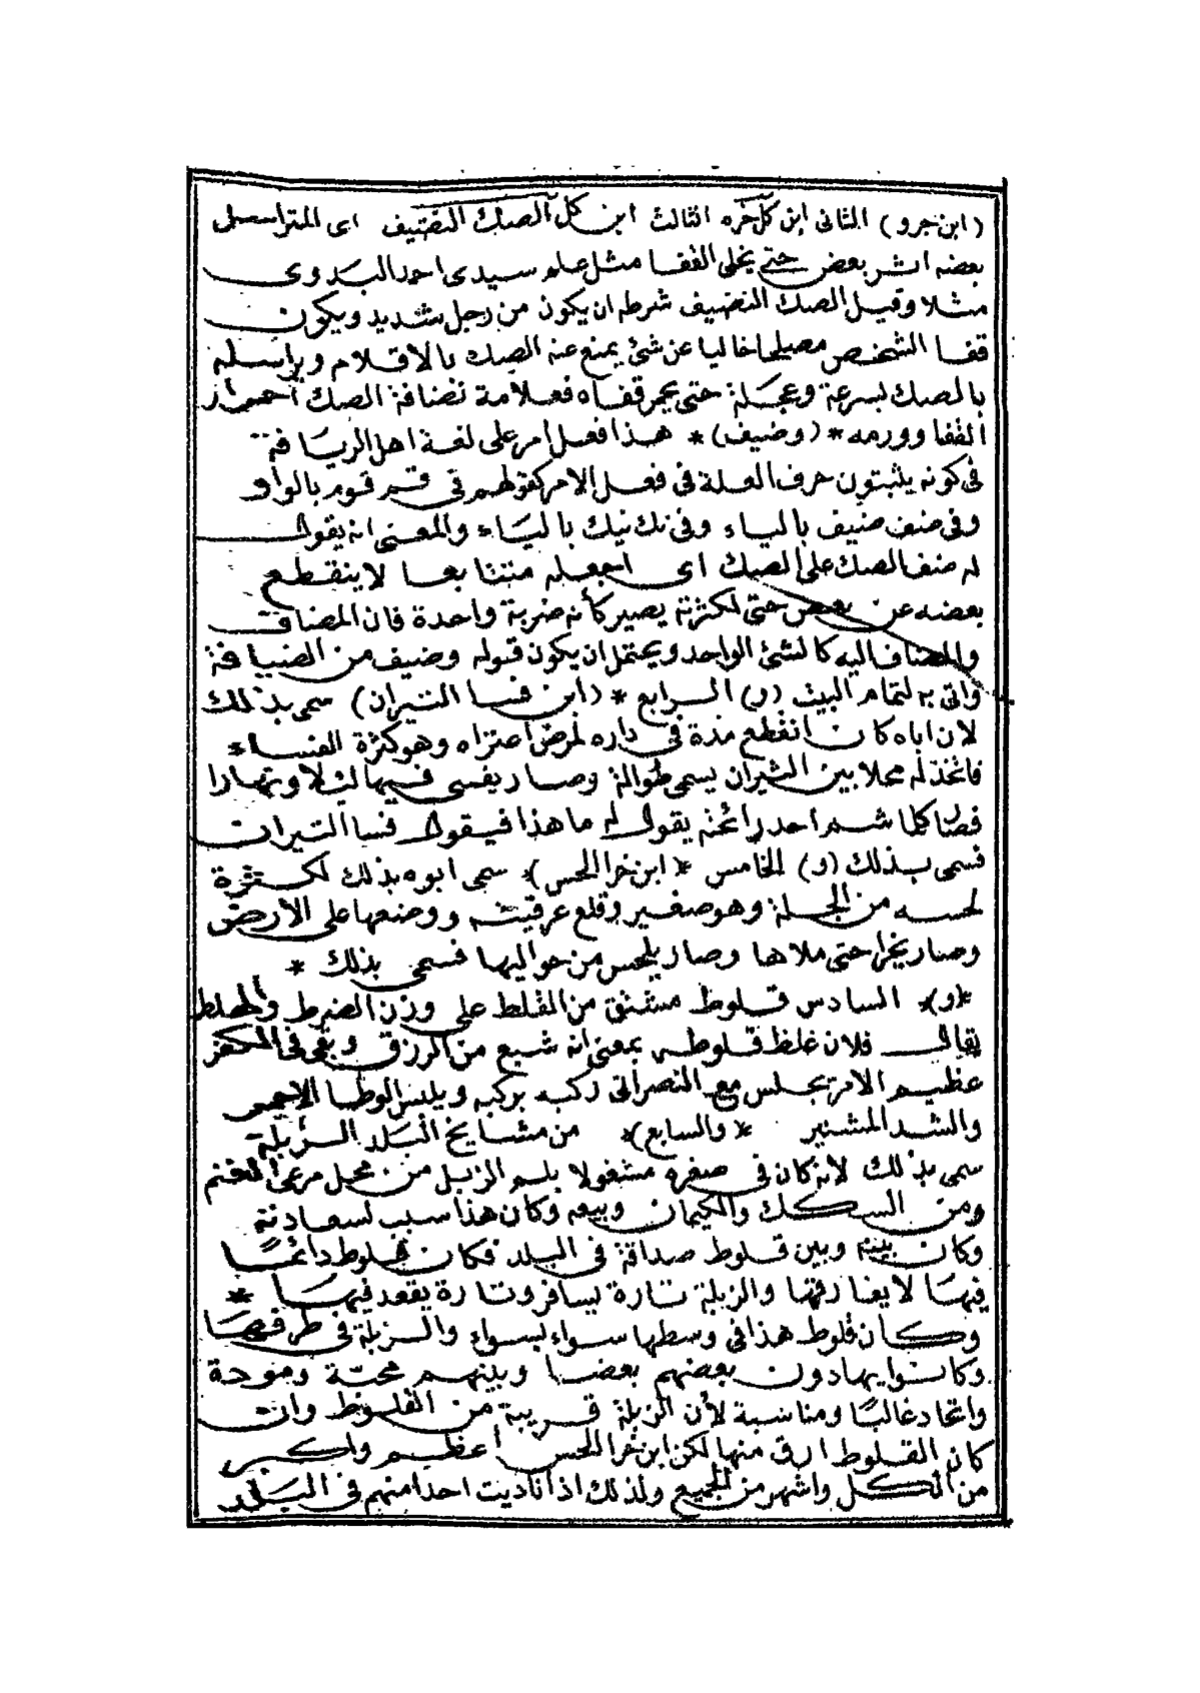 (ابن جرو) الثانى ابن كل خره الثالث ابن كل الصك النضيف اى المتراسل
بعضه اثر بعض حتى يخلى القفا مثل علم سيدى احمد البدوى
مثلا وقيل الصك النضيف شرطه ان يكون من رجل شديد ويكون
قفا الشخص مصيلحا خاليا عن شئ يمنع عنه الصك بالاقلام ويراسله
بالصك بسرعة وعجلة حتى يحمر قفاه فعلامة نضافة الصك احمرار
القفا وورمه * (وضيف) * هذا فعل امر على لغة اهل الريافة
فى كونه يثبتون حرف العلة فى فعل الامر كقولهم فى قم قوم بالواو
وفى ضف ضيف بالياء وفى نك نيك بالياء والمعنى انه يقول
له ضف الصك على الصك اى اجعله متتابعا لا ينقطع
بعضه عن بعض حتى لكثرته يصير كأنه ضربة واحدة فان المضاف
والمضاف اليه كالشئ الواحد ويحتمل ان يكون قوله وضيف من الضيافة
واتى به لتمام البيت (و) الرابع * (ابن فسا التيران) سمى بذلك
لان اباه كان انقطع مدة فى داره لمرض اعتراه وهو كثرة الفساء
فاتخذ له محلا بين الثيران يسمى طوالة وصار يفسى فيها ليلا ونهارا
فصار كلما شم احد رائحته يقول له ما هذا فيقول فسا التيران
فسمى بذلك (و) الخامس * (ابن خرا الحس) * سمى ابوه بذلك لكثرة
لحسه من الجلة وهو صغير وقلع عرقيته ووضعها على الارض
وصار يخرا حتى ملاها وصار يلحس من حواليها فسمى بذلك *
* (و) * السادس قلوط مشتق من القلط على وزن الضرط والخلط
يقال فلان غلظ قلوطه بمعنى انه شبع من الرزق وبقى فى الكفر
عظيم الامر يجلس مع النصرانى ركبه بركبه ويلبس الوطا الاحمر
والشد المشنبر * (والسابع) * من مشايخ البلد الزبلة
سمى بذلك لانه كان فى صغره مشغولا بلم الزبل من محل مرعى الغنم
ومن السكك والكيمان وبيعه وكان هذا سبب لسعادته
وكان بينه وبين قلوط صداقة فى البلد فكان قلوط دائمًا
فيها لا يفارقها والزبلة تارة يسافر وتارة يقعد فيها *
وكان قلوط هذا فى وسطها سواء بسواء والزبلة فى طرفها
وكانوا يهادون بعضهم بعضا وبينهم محبّة ومودة
واتحاد غالبًا ومناسبة لأن الزبلة قريبة من القلوط وان
كان القلوط ارق منها لكن ابن خرا الحس اعظم واكبر
من الكل واشهر من الجميع ولذلك اذا ناديت احدا منهم فى البلد